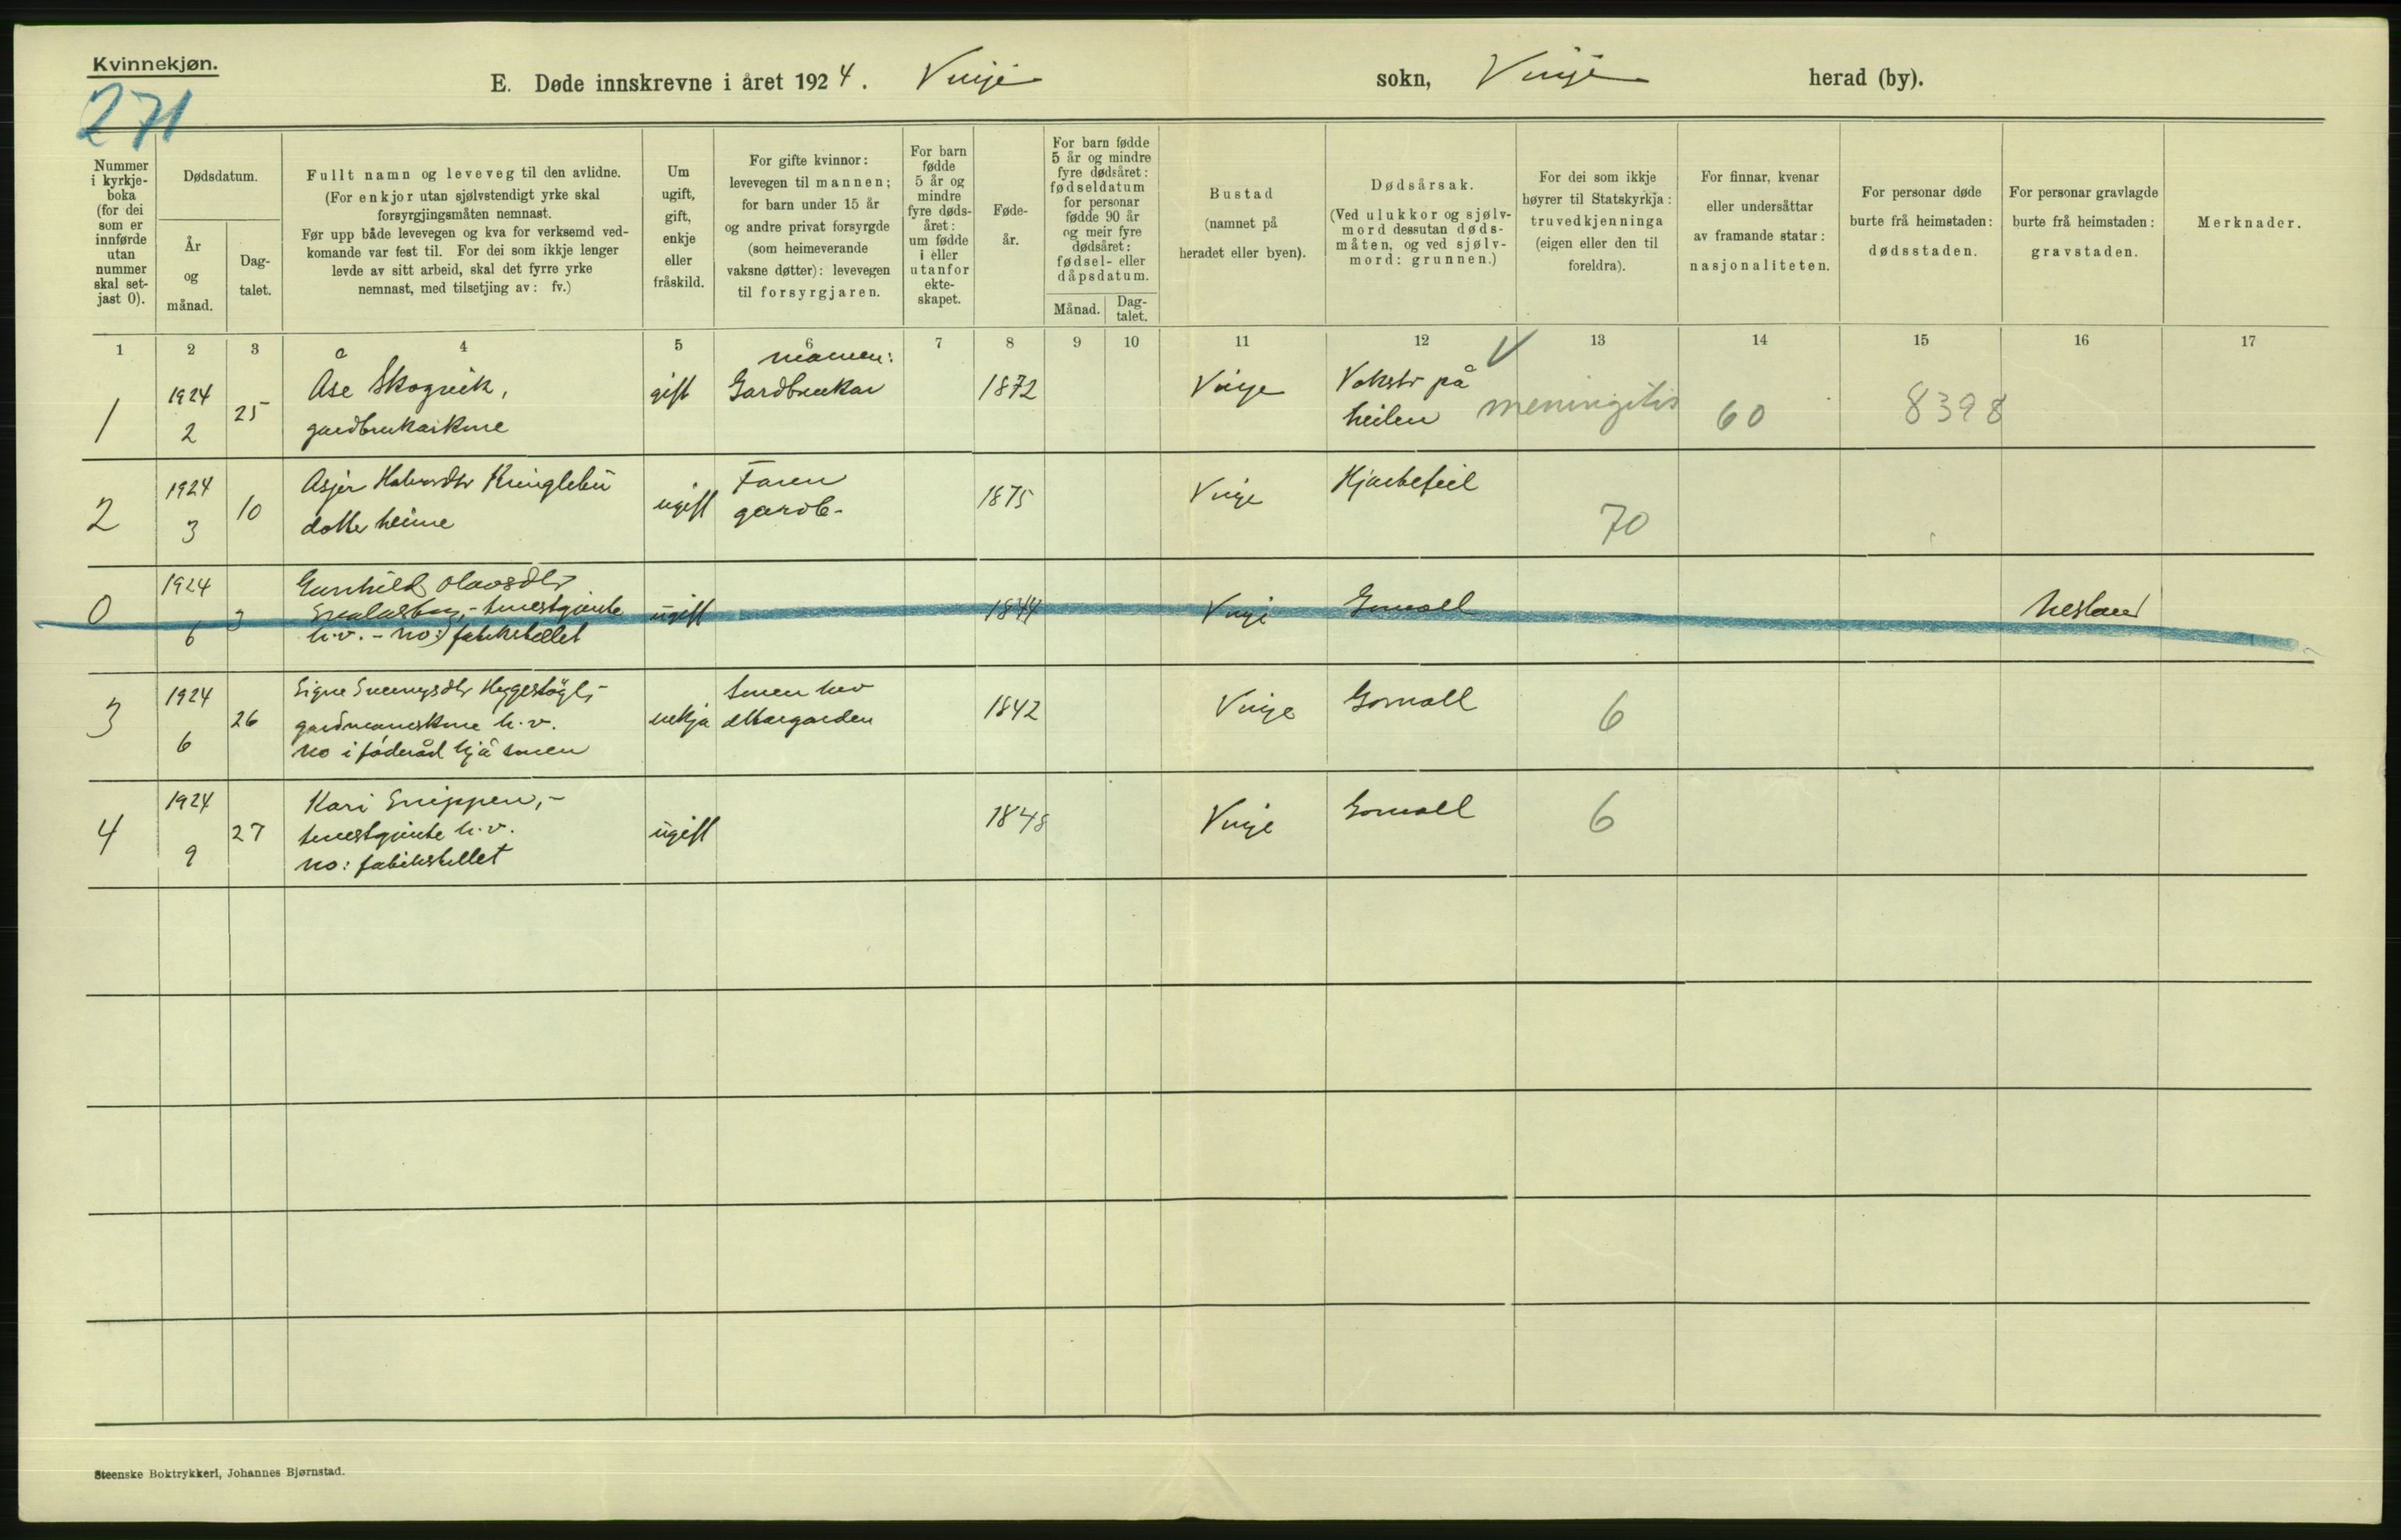 Kvinnekjøn.
271
E. Døde innskrevne i året 1924. Vinje sokn, Vinje herad (by).
Nummer i kyrkje-boka (for dei som er innførde utan nummer skal set-jast 0).
Dødsdatum.
År og månad.
Dag-talet.
Fullt namn og leveveg til den avlidne.
(For enkjor utan sjølvstendigt yrke skal
forsyrgjingsmåten nemnast.
Før upp både levevegen og kva for verksemd ved-
komande var fest til. For dei som ikkje lenger
levde av sitt arbeid, skal det fyrre yrke
nemnast, med tilsetjing av: fv.)
Um ugift, gift, enkje eller fråskild.
For gifte kvinnor:
levevegen til mannen;
for barn under 15 år
og andre privat forsyrgde
(som heimeverande
vaksne døtter): levevegen
til forsyrgjaren.
For barn fødde 5 år og mindre fyre døds-året: um fødde i eller utanfor ekte-skapet.
Føde-år.
For barn fødde
5 år og mindre
fyre dødsåret:
fødseldatum
for personar
fødde 90 år
og meir fyre
dødsåret:
fødsel- eller
dåpsdatum.
Månad.
Dag-talet.
Bustad
(namnet på
heradet eller byen).
Dødsårsak.
(Ved ulukkor og sjølv-
mord dessutan døds-
måten, og ved sjølv-
mord: grunnen.)
For dei som ikkje
høyrer til Statskyrkja:
truvedkjenninga
(eigen eller den til
foreldra).
For finnar, kvenar
eller undersåttar
av framande statar:
nasjonaliteten.
For personar døde
burte frå heimstaden:
dødsstaden.
For personar gravlagde
burte frå heimstaden:
gravstaden.
Merknader.
1 2 3 4 5 6 7 8 9 10 11 12 13 14 15 16 17
1 1924 2 25 Åse Skogvik, gardbrukarkone gift mannen: Gardbrukar 1872 Vinje Vokstr på heilen meningitis 60 8398
2 1924 3 10 Halvordtr dotter heime ugift Faren gardb. 1875 Vinje Hjartefeil 70
0 1924 6 3 Gunhild Olavsdtr tenestgjente h.v. - no: fatikstellet ugift 1844 Vinje Gomall Nesland
3 1924 6 26 Signe gardmannskone h.v. no i föderåd hjå sonen enkja sonen hev ættargarden 1842 Vinje Gomall 6
4 1924 9 27 Kari Snippen, - tenestgjente h.v. no: fatikstellet ugift 1848 Vinje Gomall 6
Steenske Boktrykkeri, Johannes Bjørnstad.